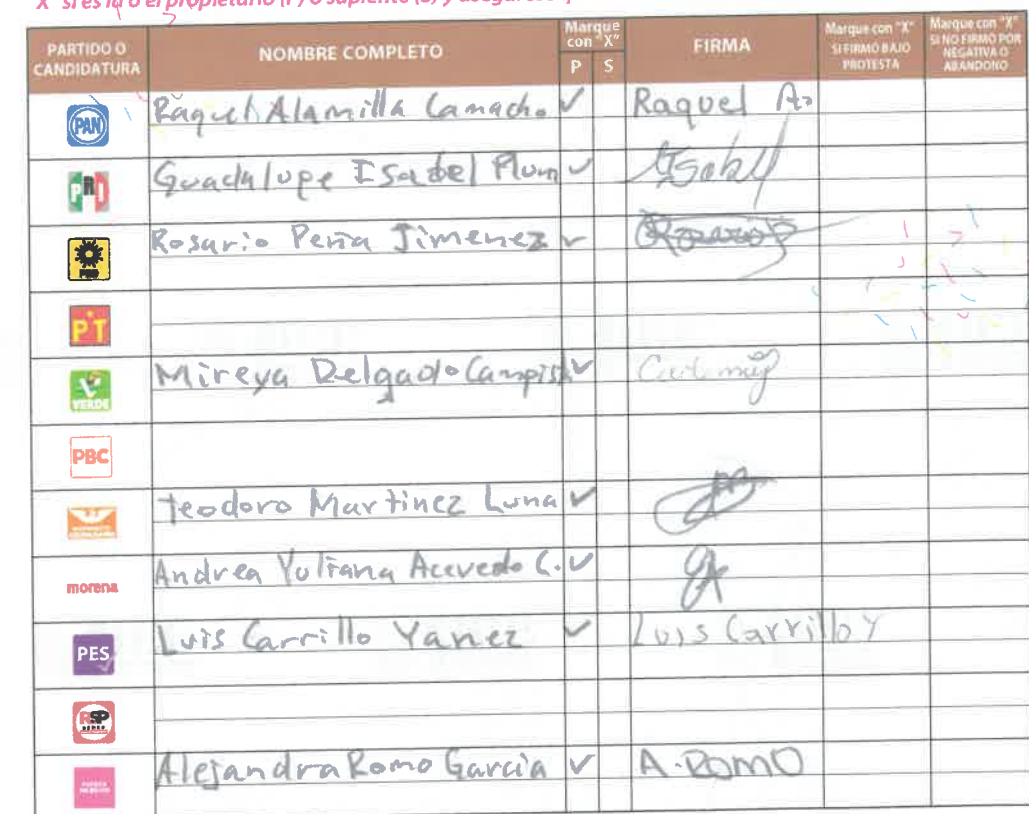 "X" si es la o el propietario (P) o suplente (S) y asegúrese
PARTIDO O CANDIDATURA
NOMBRE COMPLETO
Marque con "X"
P S
FIRMA
Marque con "X" SI FIRMÓ BAJO PROTESTA
Marque con "X" SI NO FIRMÓ POR NEGATIVA O ABANDONO
PAN Raquel Alamilla Camacho ✓ Raquel A.
PRI Guadalupe Isabel Plum ✓
PRD Rosario Peña Jimenez ✓ Rosario P
PT
VERDE Mireya Delgado ✓
PBC
Teodoro Martinez Luna ✓
morena Andrea Yuliana Acevedo C. ✓
PES Luis Carrillo Yanez ✓ Luis Carrillo Y
RSP
Alejandra Romo García ✓ A. ROMO